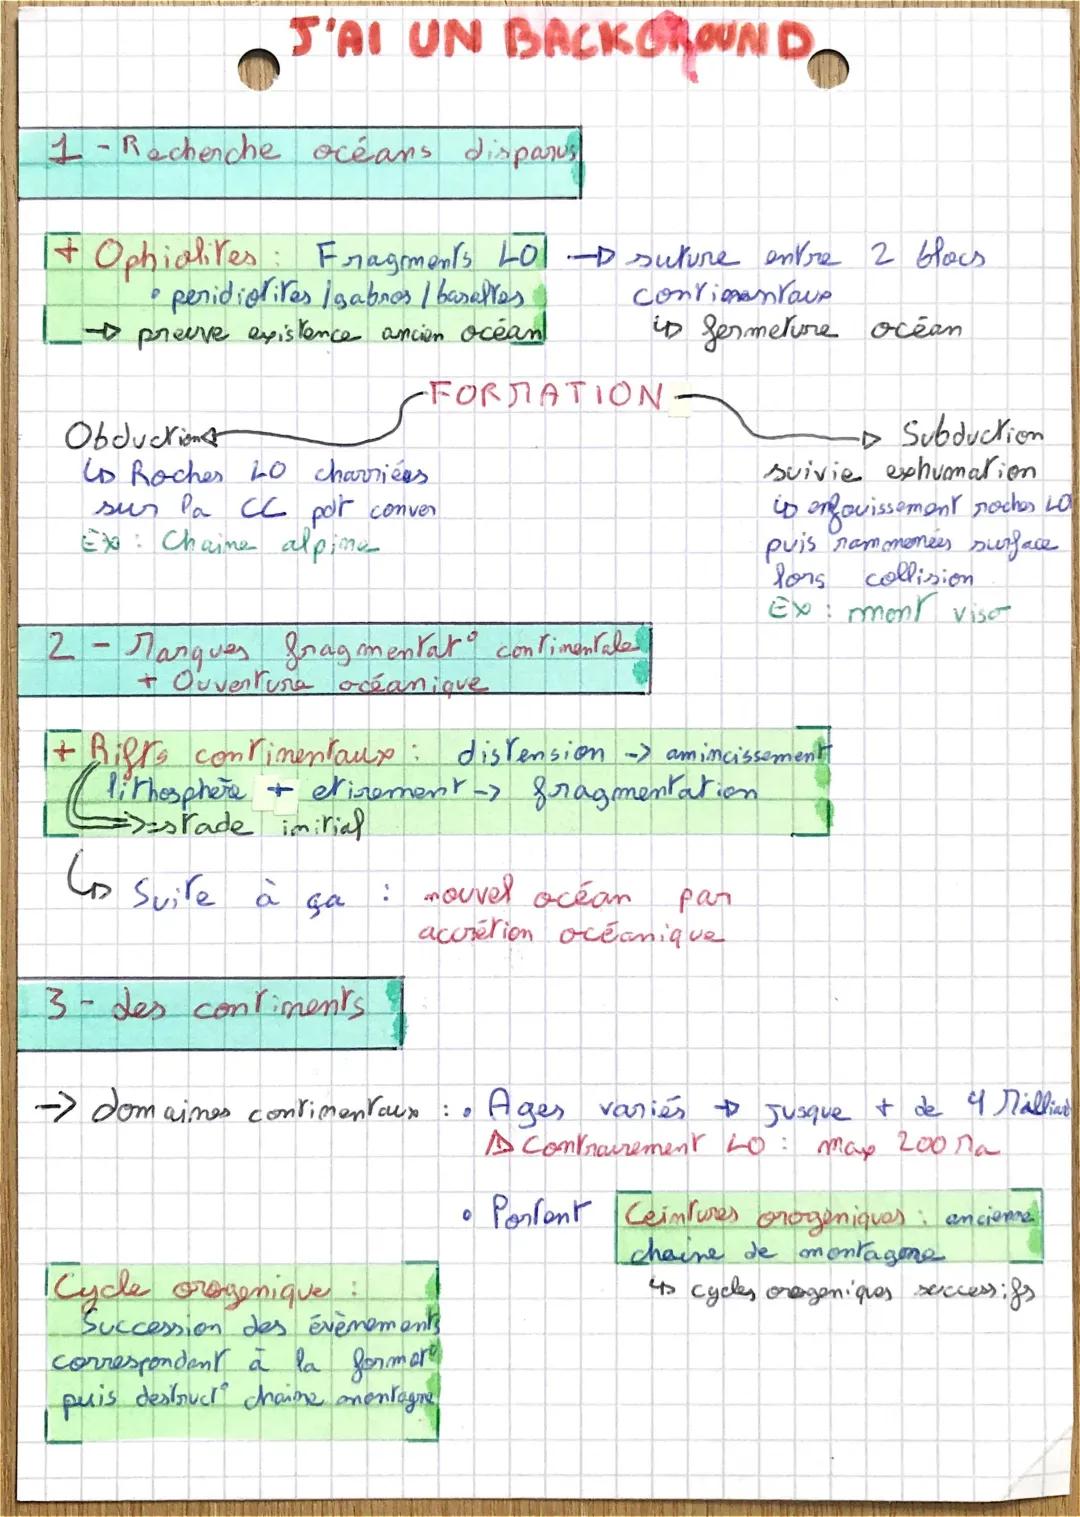 J'AI UN BACKGROUND
1 - Recherche océans disparus
+ Ophiolites : Fragments LO
• peridiotites / gabros / basaltes
→ preuve existence ancien océan
→ suture entre 2 blocs
continentaux
↳ fermeture océan
FORMATION
Obduction
↳ Roches LO charriées
sur la CC pdt conver
Ex : Chaine alpine
Subduction
suivie exhumation
↳ enfouissement roches LO
puis rammenées surface
lors collision
Ex : mont viso
2 - Marques fragmentat° continentale
+ Ouverture océanique
+ Rifts continentaux : distension -> amincissement
lithosphère + etirement -> fragmentation
=> stade initial
↳ Suite à ça : nouvel océan par
accrétion océanique
3 - des continents
-> domaines continentaux : • Ages variés → jusque + de 4 Milliard
⚠ Contrairement LO : max 200 Ma
• Portent Ceintures orogéniques : ancienne
chaine de montagne
↳ cycles orogeniques successifs
Cycle orogenique :
Succession des évènements
correspondent à la format°
puis destruct° chaine montagne